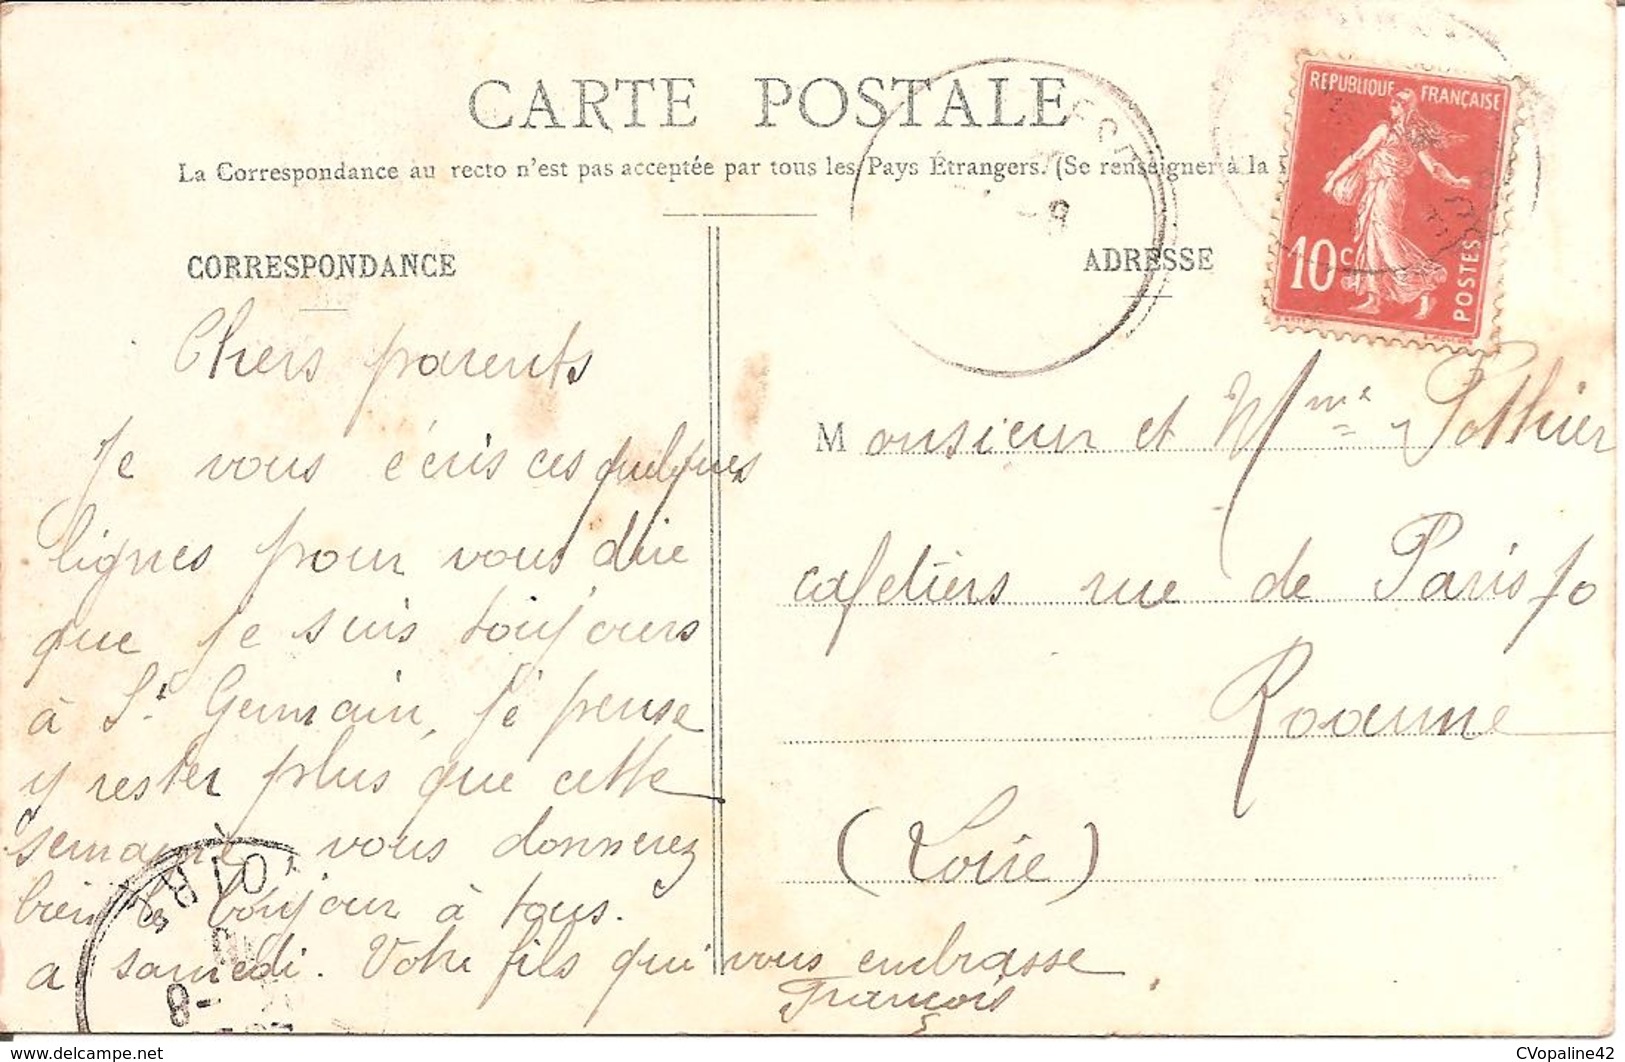 CARTE POSTALE
La Correspondance au recto n'est pas acceptée par tous les Pays Étrangers. (Se renseigner à la
REPUBLIQUE FRANÇAISE
10c
POSTES
CORRESPONDANCE
ADRESSE
Chers parents
Je vous écris ces quelques
lignes pour vous dire
que je suis toujours
à St Germain, je pense
y rester plus que cette
semaine, vous donnerez
bien le bonjour à tous.
a samedi. Votre fils qui vous embrasse
François
Monsieur et Mme Pothier
cafetiers rue de Paris 70
Roanne
(Loire)
www.delcampe.net
CVopaline42